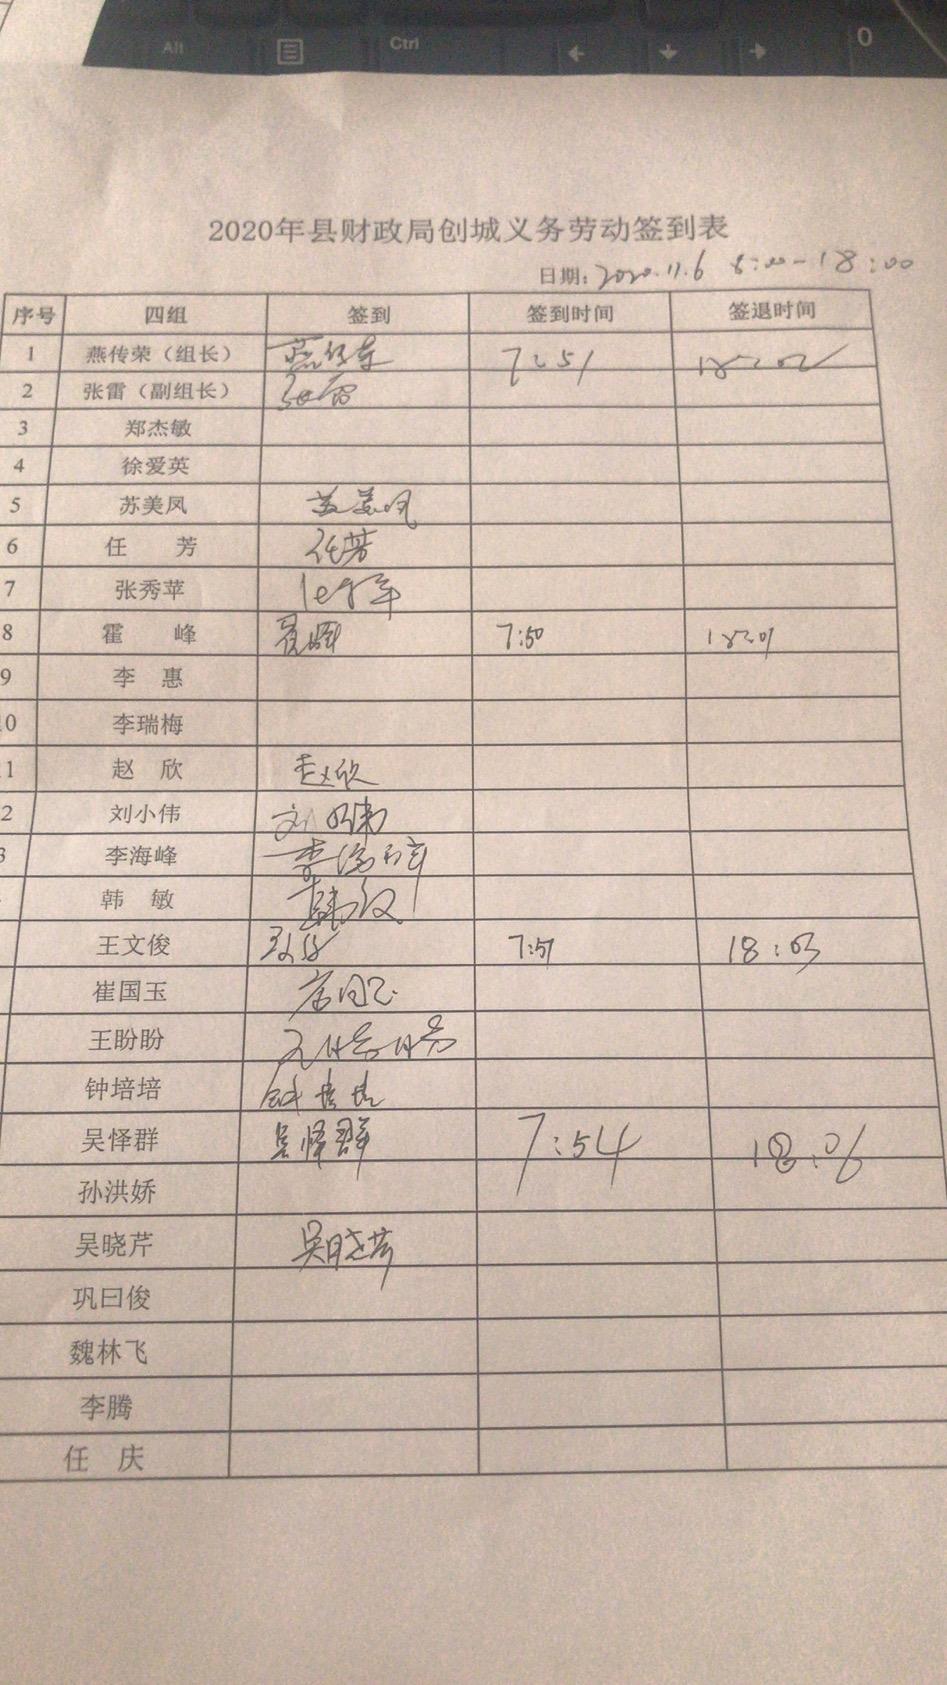 Alt Ctrl ← ↓ → 0
2020年县财政局创城义务劳动签到表
日期: 2020.11.6 8:00-18:00
序号 四组 签到 签到时间 签退时间
1 燕传荣（组长） 燕传荣 7:51 18:02
2 张雷（副组长） 张雷
3 郑杰敏
4 徐爱英
5 苏美凤 苏美凤
6 任 芳 任芳
7 张秀苹
8 霍 峰 霍峰 7:50 18:01
9 李 惠
10 李瑞梅
1 赵 欣 赵欣
2 刘小伟 刘小伟
3 李海峰 李海峰
韩 敏 韩敏
王文俊 王文俊 7:51 18:03
崔国玉 崔国玉
王盼盼 王盼盼
钟培培 钟培培
吴怿群 吴怿群 7:54 18:06
孙洪娇
吴晓芹 吴晓芹
巩曰俊
魏林飞
李腾
任 庆